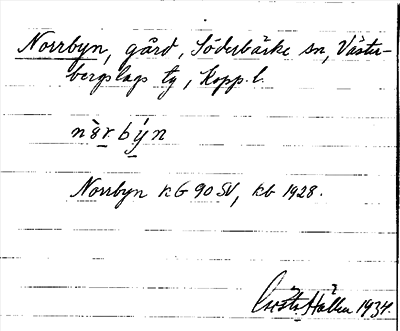 Norrbyn, gård, Söderbärke sn, Väster-
bergslags tg, Kopp. l.
nòrbýn
Norrbyn KG 90 SV, kb 1928.
Gösta Hallin 1934.